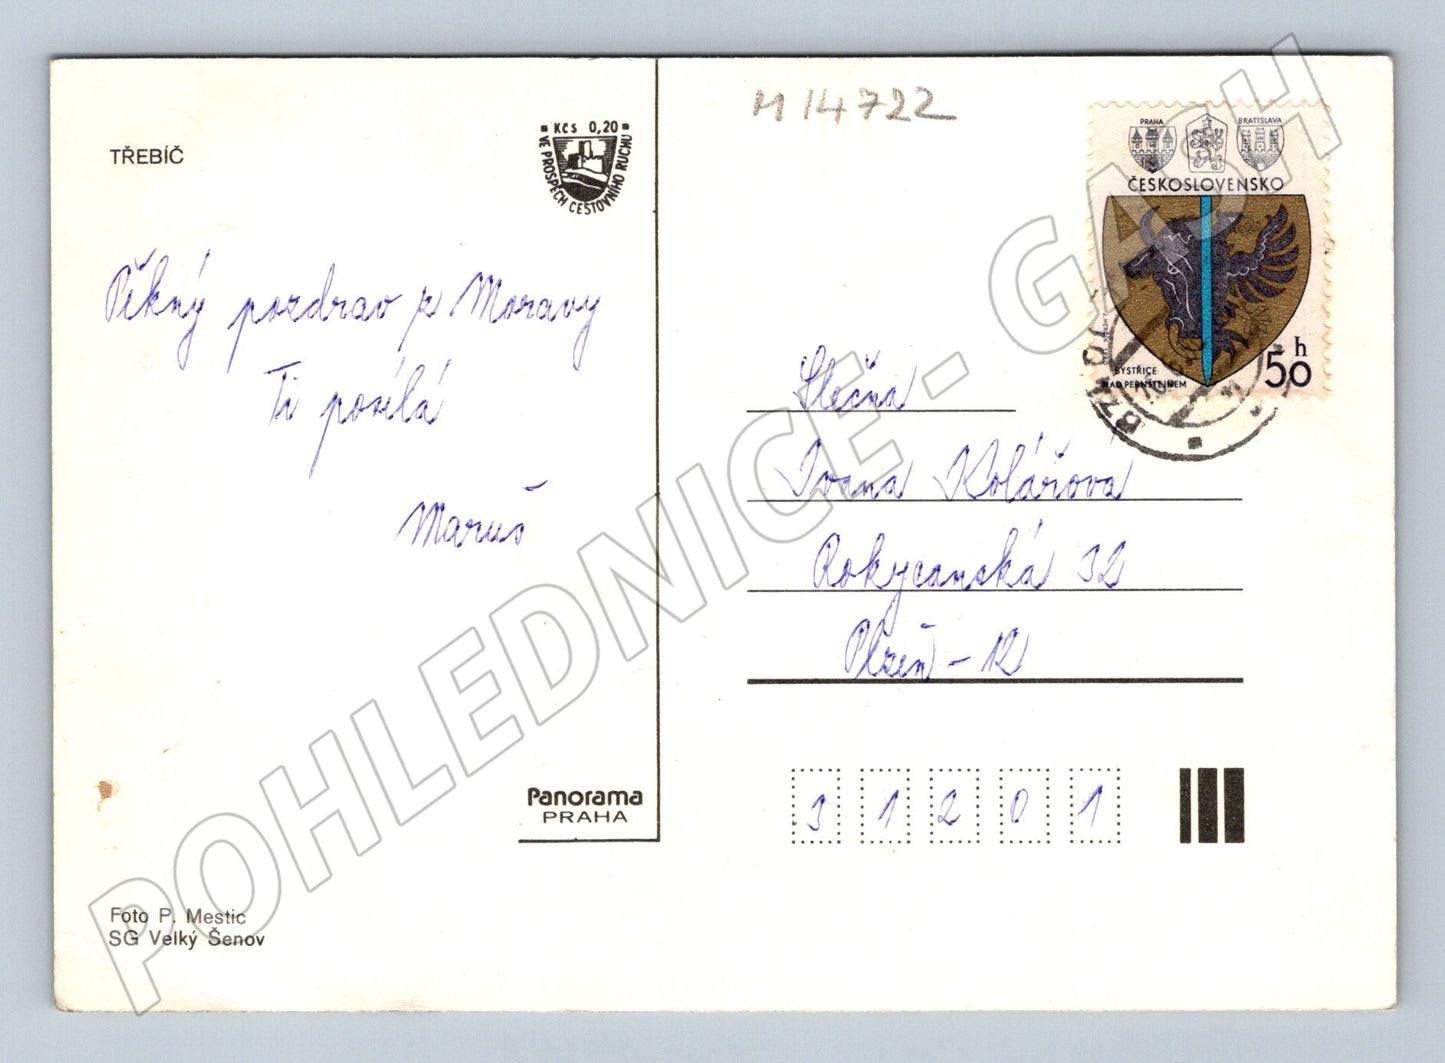 TŘEBÍČ
KČS 0,20
VE PROSPĚCH CESTOVNÍHO RUCHU
M 14722
PRAHA
BRATISLAVA
ČESKOSLOVENSKO
BYSTŘICE
NAD PERNŠTEJNEM
50 h
Pěkný pozdrav z Moravy
Ti posílá
Maruš
Slečna
Ivana Kolářová
Rokycanská 32
Plzeň - 12
31201
Panorama
PRAHA
Foto P. Mestic
SG Velký Šenov
POHLEDNICE - GASH